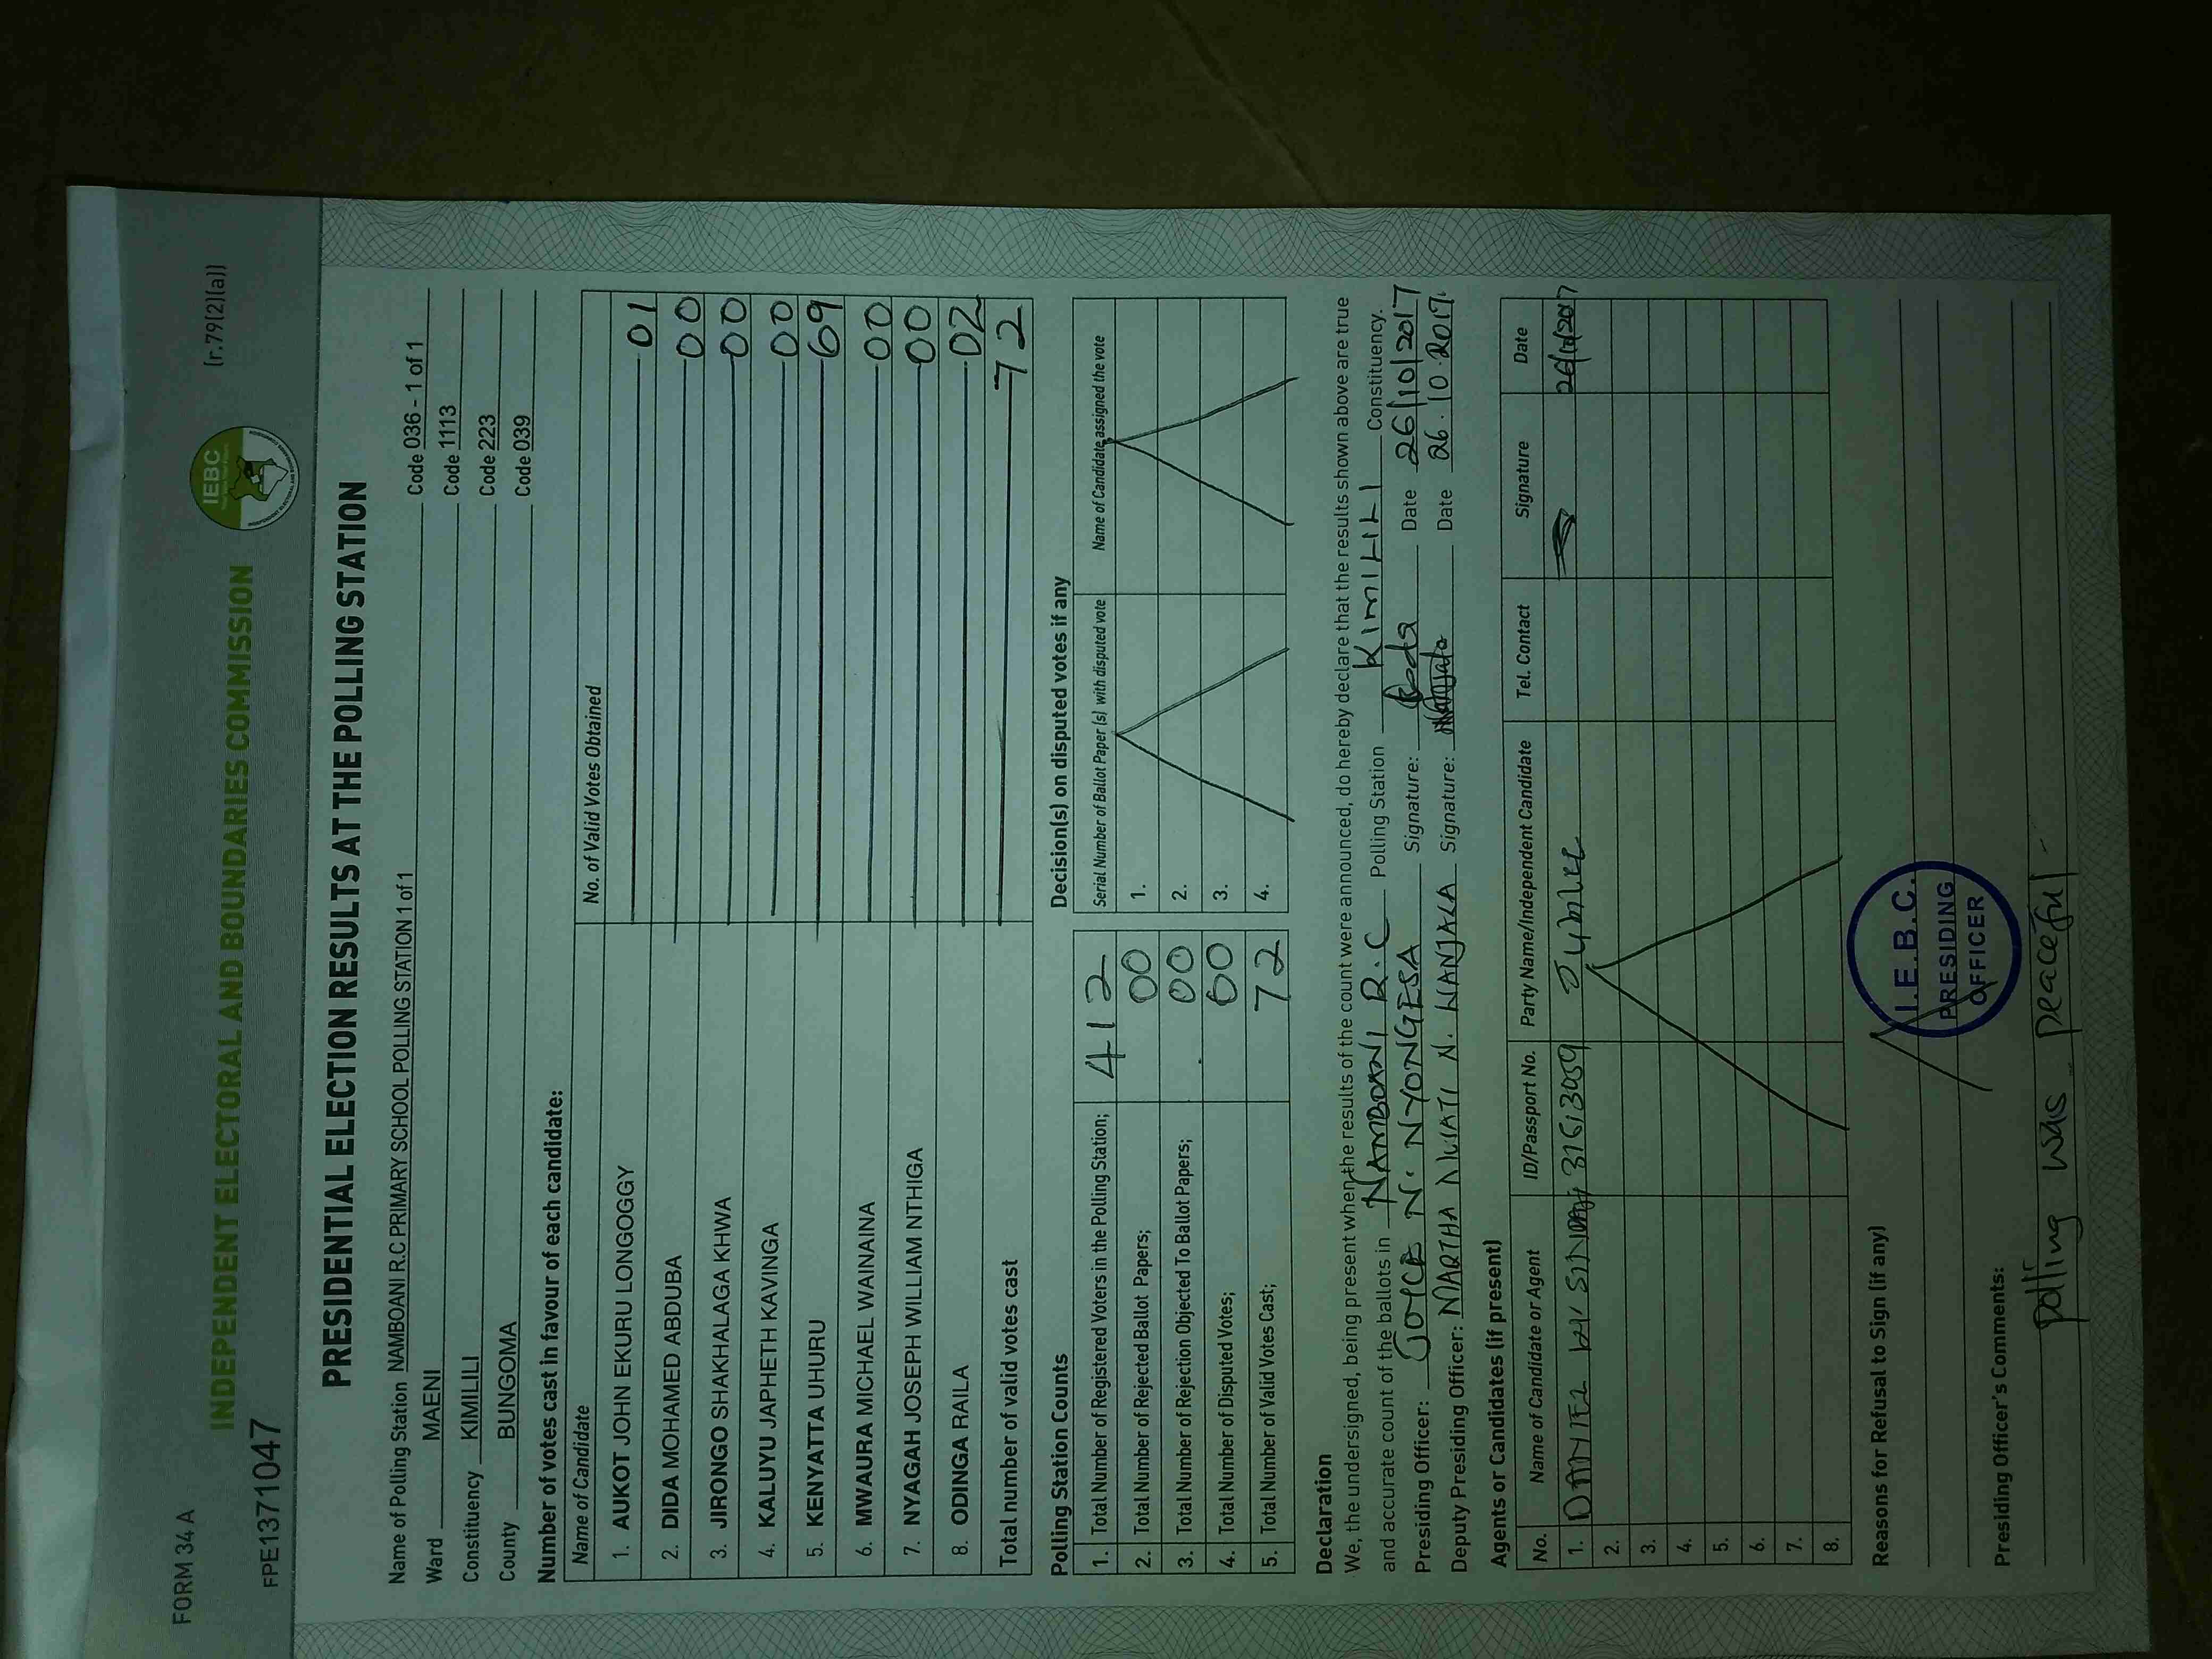 FORM 34 A
[r.79(2)(a)]
INDEPENDENT ELECTORAL AND BOUNDARIES COMMISSION
IEBC
FPE1371047
PRESIDENTIAL ELECTION RESULTS AT THE POLLING STATION
Name of Polling Station NAMBOANI R.C PRIMARY SCHOOL POLLING STATION 1 of 1 Code 036 - 1 of 1
Ward MAENI Code 1113
Constituency KIMILILI Code 223
County BUNGOMA Code 039
Number of votes cast in favour of each candidate:
Name of Candidate No. of Valid Votes Obtained
1. AUKOT JOHN EKURU LONGOGGY 01
2. DIDA MOHAMED ABDUBA 00
3. JIRONGO SHAKHALAGA KHWA 00
4. KALUYU JAPHETH KAVINGA 00
5. KENYATTA UHURU 69
6. MWAURA MICHAEL WAINAINA 00
7. NYAGAH JOSEPH WILLIAM NTHIGA 00
8. ODINGA RAILA 02
Total number of valid votes cast 72
Polling Station Counts
1. Total Number of Registered Voters in the Polling Station; 412
2. Total Number of Rejected Ballot Papers; 00
3. Total Number of Rejection Objected To Ballot Papers; 00
4. Total Number of Disputed Votes; 00
5. Total Number of Valid Votes Cast; 72
Decision(s) on disputed votes if any
Serial Number of Ballot Paper (s) with disputed vote Name of Candidate assigned the vote
1.
2.
3.
4.
Declaration
We, the undersigned, being present when the results of the count were announced, do hereby declare that the results shown above are true
and accurate count of the ballots in NAMBOANI R.C Polling Station KIMILILI Constituency.
Presiding Officer: JOYCE N. NYONGESA Signature: Date 26/10/2017
Deputy Presiding Officer: MARTHA N. WANJALA Signature: Date 26.10.2017
Agents or Candidates (if present)
No. Name of Candidate or Agent ID/Passport No. Party Name/Independent Candidate Tel. Contact Signature Date
1. DANIEL 31613059 Jubilee 26/10/2017
2.
3.
4.
5.
6.
7.
8.
Reasons for Refusal to Sign (if any)
I.E.B.C.
PRESIDING
OFFICER
Presiding Officer's Comments:
polling was peaceful